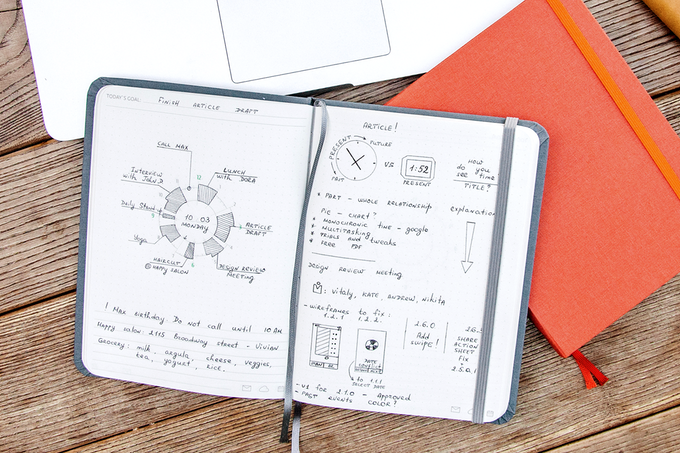 TODAY'S GOAL: FINISH ARTICLE DRAFT
CALL MAX
INTERVIEW
with JOHN D
LUNCH
with DORA
Daily Stand up
10 03
MONDAY
ARTICLE
DRAFT
Yoga
HAIRCUT
@ HAPPY SALON
DESIGN REVIEW
MEETING
! Max birthday. Do not call until 10 AM
Happy salon: 2115 Broadway street - Vivian
Grocery: milk, arugula, cheese, veggies,
tea, yogurt, rice,
ARTICLE!
PRESENT
FUTURE
PAST
VS
1:52
PRESENT
HOW
do you
see time
TITLE?
* PART - WHOLE RELATIONSHIP
PIE - CHART?
* MONOCHRONIC TIME - google
* MULTITASKING
* TRIALS and tweaks
* FREE PDF
explanation
DESIGN REVIEW MEETING
: Vitaly, KATE, ANDREW, Nikita
- WIREFRAMES to fix:
1.2.1 1.2.2.
2.6.0
Add
SWIPE!
SHARE
ACTION
SHEET
Fix
2.5.0!
to 1.1.1
SELECT DATE
- V1 FOR 2.1.0 - Approved
- PAST EVENTS COLOR!